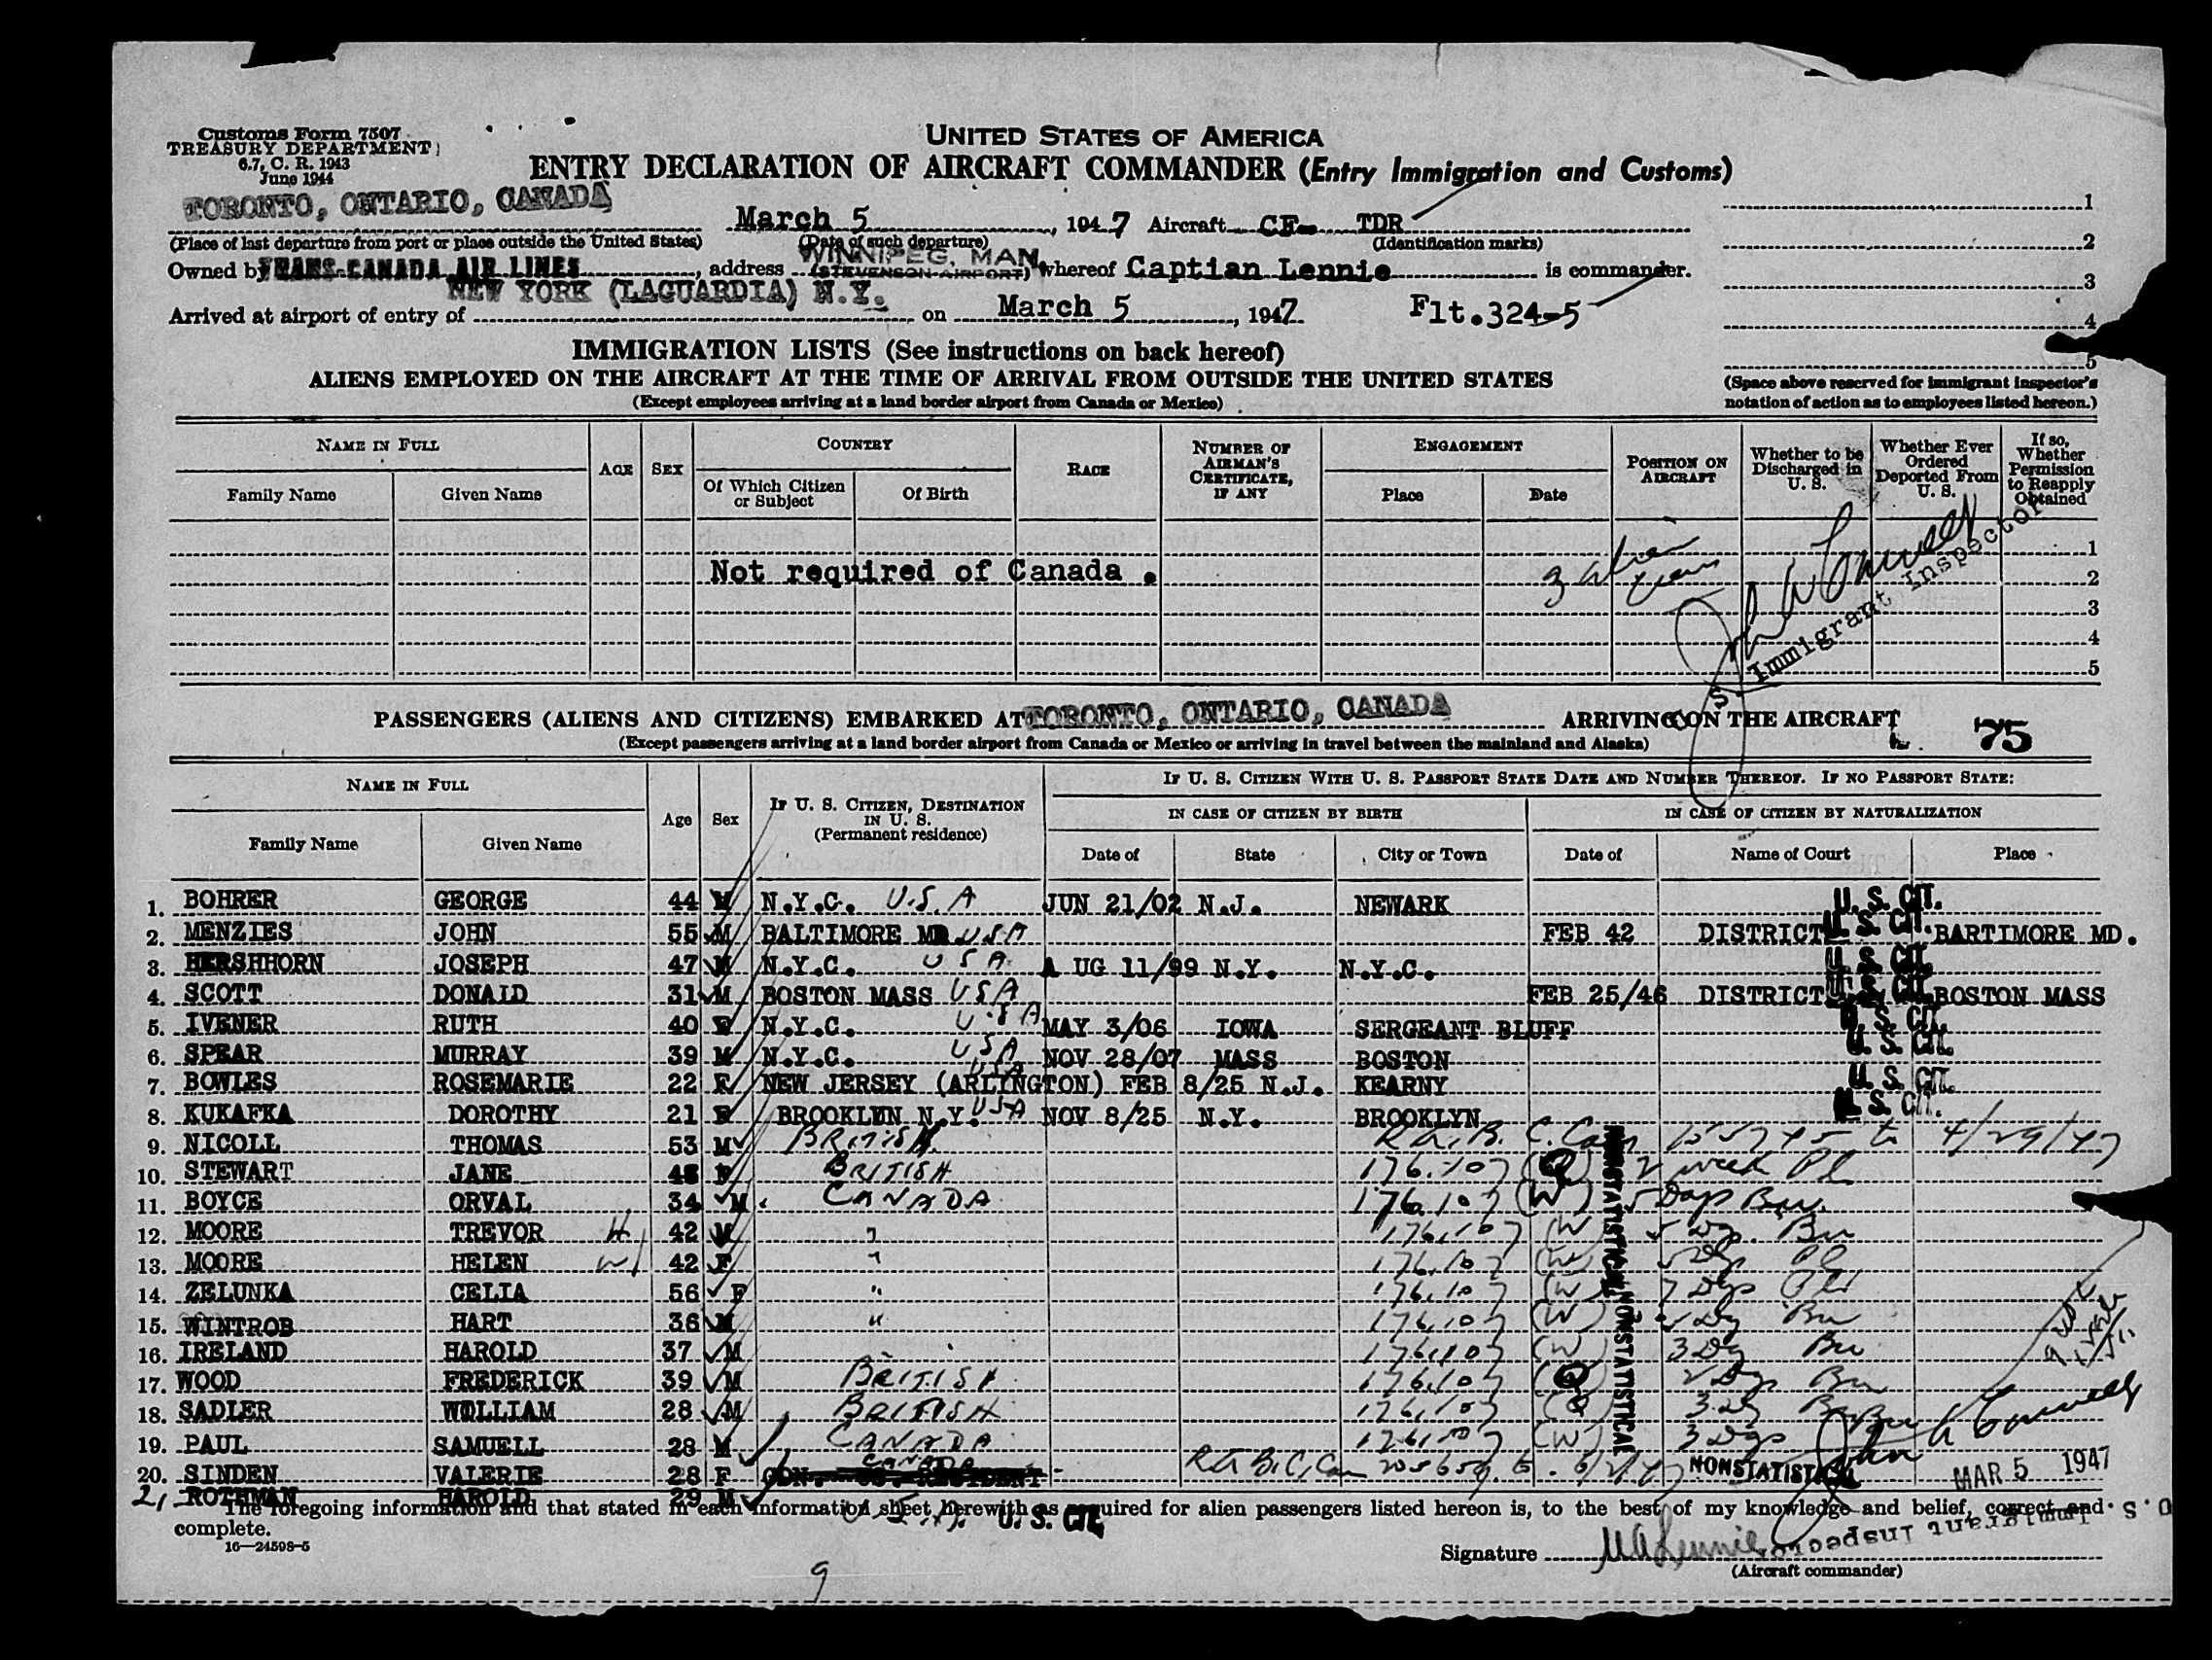 Customs Form 7507
TREASURY DEPARTMENT
6.7, C. R. 1943
June 1944
UNITED STATES OF AMERICA
ENTRY DECLARATION OF AIRCRAFT COMMANDER (Entry Immigration and Customs)
TORONTO, ONTARIO, CANADA March 5, 1947 Aircraft CF- TDR 1
(Place of last departure from port or place outside the United States) (Date of such departure) (Identification marks) 2
Owned by TRANS-CANADA AIR LINES, address WINNIPEG, MAN. (STEVENSON AIRPORT) whereof Captian Lennie is commander.
3
Arrived at airport of entry of NEW YORK (LAGUARDIA) N.Y. on March 5, 1947 Flt.324-5
4
IMMIGRATION LISTS (See instructions on back hereof)
5
ALIENS EMPLOYED ON THE AIRCRAFT AT THE TIME OF ARRIVAL FROM OUTSIDE THE UNITED STATES
(Except employees arriving at a land border airport from Canada or Mexico)
(Space above reserved for immigrant inspector's notation of action as to employees listed hereon.)
NAME IN FULL AGE SEX COUNTRY RACE NUMBER OF AIRMAN'S CERTIFICATE, IF ANY ENGAGEMENT POSITION ON AIRCRAFT Whether to be Discharged in U. S. Whether Ever Ordered Deported From U. S. If so, Whether Permission to Reapply Obtained
Family Name Given Name Of Which Citizen or Subject Of Birth Place Date
1
Not required of Canada . 3 alien 2
3
4
5
U. S. Immigrant Inspector
PASSENGERS (ALIENS AND CITIZENS) EMBARKED AT TORONTO, ONTARIO, CANADA ARRIVING ON THE AIRCRAFT 75
(Except passengers arriving at a land border airport from Canada or Mexico or arriving in travel between the mainland and Alaska)
NAME IN FULL Age Sex IF U. S. CITIZEN, DESTINATION IN U. S. (Permanent residence) IF U. S. CITIZEN WITH U. S. PASSPORT STATE DATE AND NUMBER THEREOF. IF NO PASSPORT STATE:
IN CASE OF CITIZEN BY BIRTH IN CASE OF CITIZEN BY NATURALIZATION
Family Name Given Name Date of State City or Town Date of Name of Court Place
1. BOHRER GEORGE 44 M N.Y.C. U.S.A JUN 21/02 N.J. NEWARK U. S. CIT.
2. MENZIES JOHN 55 M BALTIMORE MD USA FEB 42 DISTRICT U. S. CIT. BARTIMORE MD.
3. HERSHHORN JOSEPH 47 M N.Y.C. USA A UG 11/99 N.Y. N.Y.C. U. S. CIT.
4. SCOTT DONALD 31 M BOSTON MASS USA FEB 25/46 DISTRICT U. S. CIT. BOSTON MASS
5. IVENER RUTH 40 F N.Y.C. U.S A MAY 3/06 IOWA SERGEANT BLUFF U. S. CIT.
6. SPEAR MURRAY 39 M N.Y.C. U.S.A NOV 28/07 MASS BOSTON U. S. CIT.
7. BOWLES ROSEMARIE 22 F NEW JERSEY (ARLINGTON) USA FEB 8/25 N.J. KEARNY U. S. CIT.
8. KUKAFKA DOROTHY 21 F BROOKLYN N.Y. USA NOV 8/25 N.Y. BROOKLYN U. S. CIT.
9. NICOLL THOMAS 53 M BRITISH 4/29/47
10. STEWART JANE 48 F BRITISH 176.107 (Q) 2 week Pl
11. BOYCE ORVAL 34 M CANADA 176.107 (W) 5 Days Bu.
12. MOORE TREVOR H 42 M " 176.107 (W) Bu
13. MOORE HELEN W 42 F " 176.107 (W) Pl
14. ZELUNKA CELIA 56 F " 176.107 (W) 7 Dys
15. WINTROB HART 36 M " 176.107 (W) Bu
16. IRELAND HAROLD 37 M 176.107 (W) 3 Dy Bu
17. WOOD FREDERICK 39 M BRITISH 176.107 (Q) 2 Dys Bu
18. SADLER WILLIAM 28 M BRITISH 176.107 (Q) 3 Dy Bu
19. PAUL SAMUELL 28 M CANADA 176.107 (W) 3 Dys Bu
20. SINDEN VALERIE 28 F CANADA NONSTATISTICAL MAR 5 1947
NONSTATISTICAL NONSTATISTICAL
21 ROTHMAN HAROLD 29 M U.S.A. U. S. CIT.
The foregoing information and that stated in each information sheet herewith as required for alien passengers listed hereon is, to the best of my knowledge and belief, correct and
complete.
U. S. Immigrant Inspector
16—24598-5
Signature
(Aircraft commander)
9